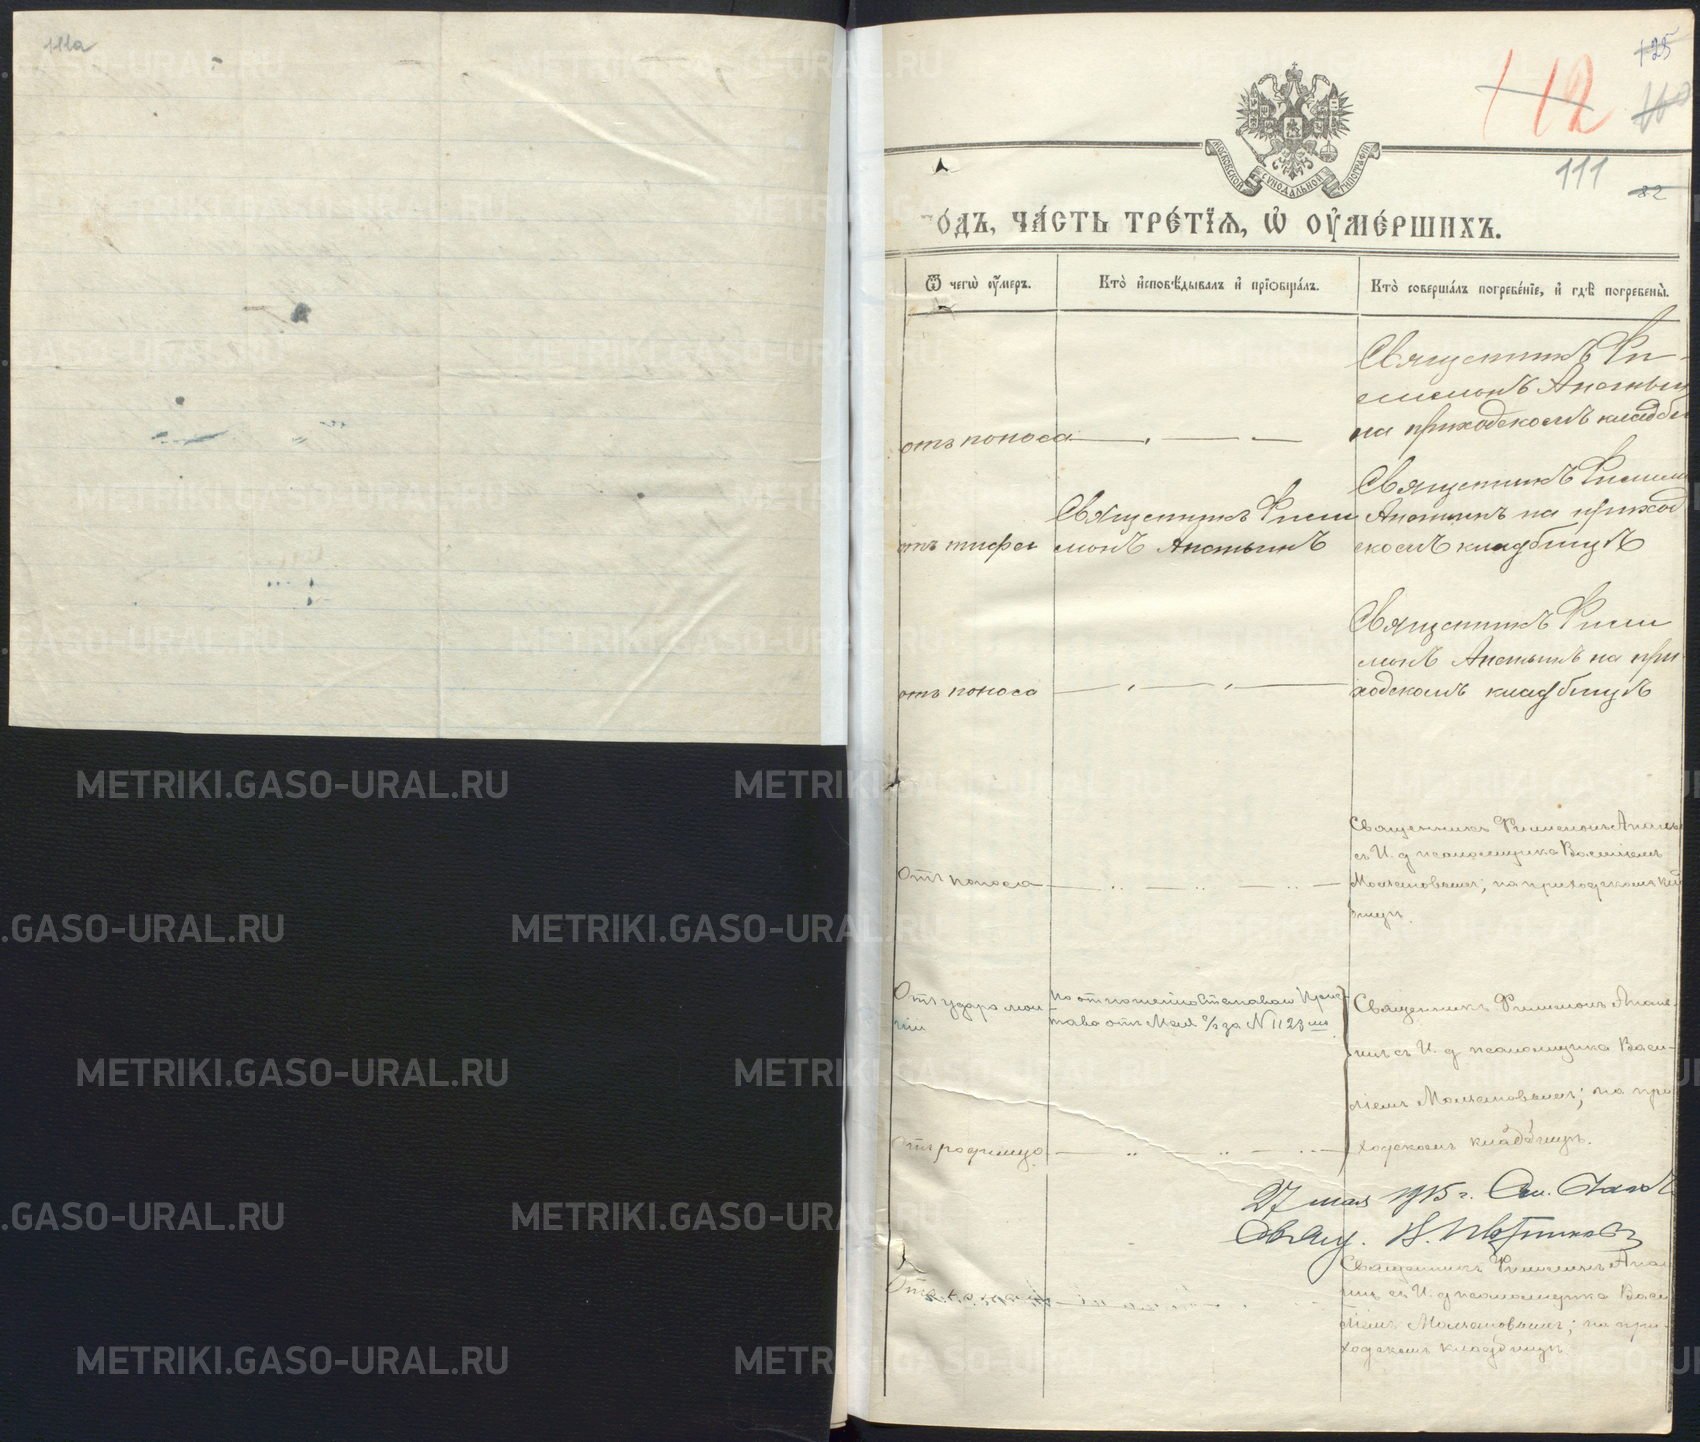 111а
125
112
111
82
МОСКОВСКОЙ СѴНОДАЛЬНОЙ ТИПОГРАФІИ
о́дъ, ча́сть тре́тїѧ, ѡ҆ оу҆ме́ршихъ.
Ѿ чегѡ̀ оу҆́меръ.
Кто̀ и҆сповѣ́дывалъ и҆ прїѡбща́лъ.
Кто̀ соверша́лъ погребе́нїе, и҆ гдѣ̀ погребены̀.
отъ поноса
Священникъ Фи-
лимонъ Ананьин
на приходскомъ кладби
отъ тифа
Священникъ Фили
монъ Ананьинъ
Священникъ Филим
Ананьинъ на приход
скомъ кладбищѣ
отъ поноса
Священникъ Фили
монъ Ананьинъ на при
ходскомъ кладбищѣ
Отъ поноса
Священникъ Филимонъ Ананьи
съ И. д псаломщика Василіемъ
Молчановымъ; на приходскомъ кла
бищѣ.
Отъ удара мол
ніи
По отношенію Становаго Прис-
тава отъ Мая за № 1123
Священникъ Филимонъ Анань
инъ съ И. д псаломщика Васи-
ліемъ Молчановымъ; на при
ходскомъ кладбищѣ.
Отъ родимца
27 мая 1915 г.
Свящ.
Отъ
Священникъ Филимонъ Анань
инъ съ И. д псаломщика Васи
ліемъ Молчановымъ; на при-
ходскомъ кладбищѣ
METRIKI.GASO-URAL.RU